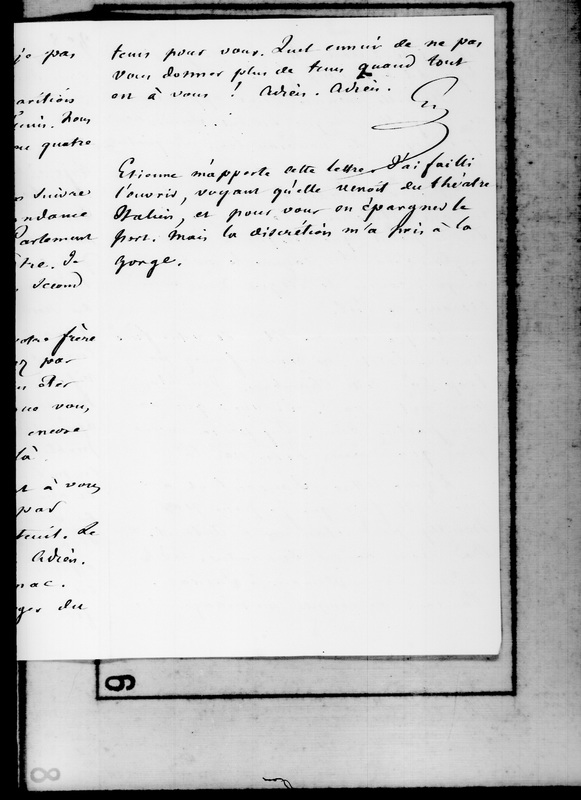 je pas
paritions
Nous
ou quatre
suivre
ndance
Parlement
tre. Je
second
votre frère
par
ôter
que vous,
encore
là
à vous
pas
Le
Adieu.
nac.
ger du
tems pour vous. Quel ennui de ne pas
vous donner plus de tems quand tout
est à vous ! Adieu. Adieu.
G
Etienne m'apporte cette lettre. J'ai failli
l'ouvrir, voyant qu'elle venoit du théâtre
Italien, et pour vous en épargner le
port. Mais la discrétion m'a pris à la
gorge.
9
8